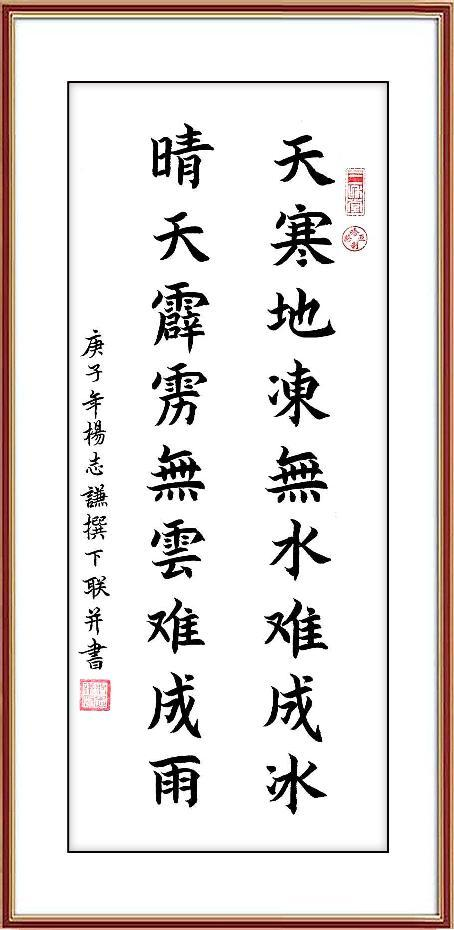 天寒地凍無水难成冰
晴天霹雳無雲难成雨
庚子年楊志謙撰下联并書